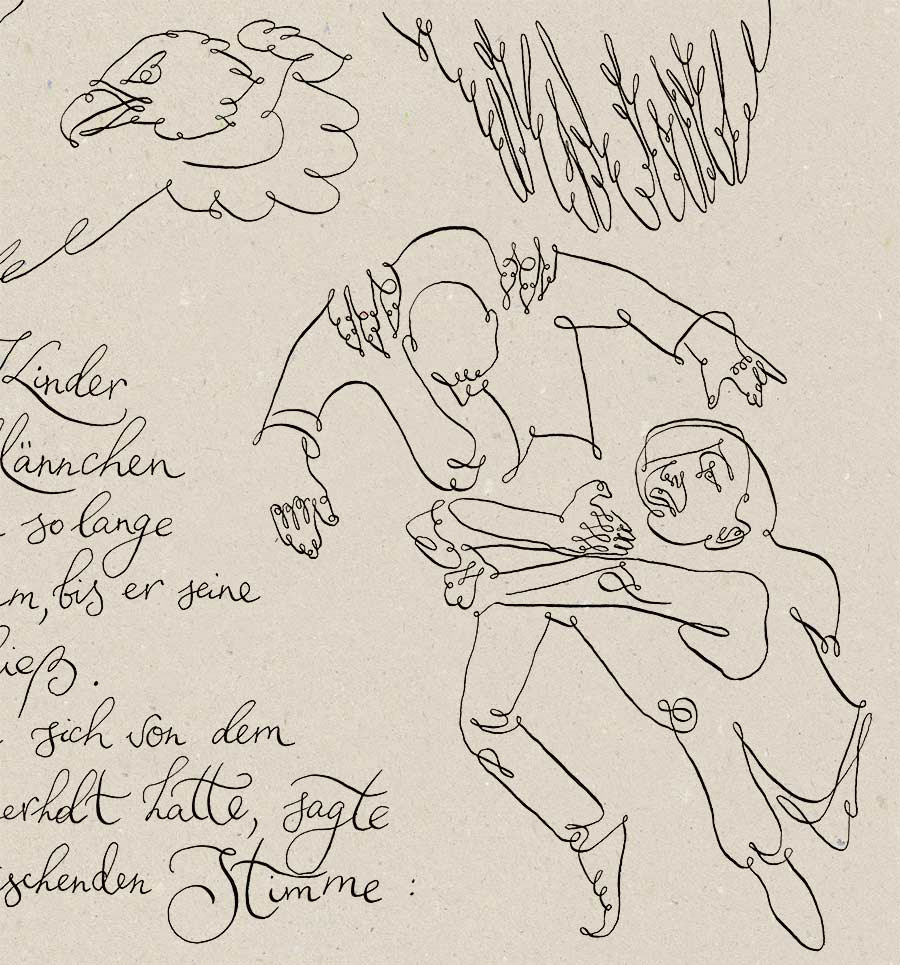 Kinder
Männchen
so lange
m, bis er seine
ieß.
sich von dem
erholt hatte, sagte
schenden Stimme :